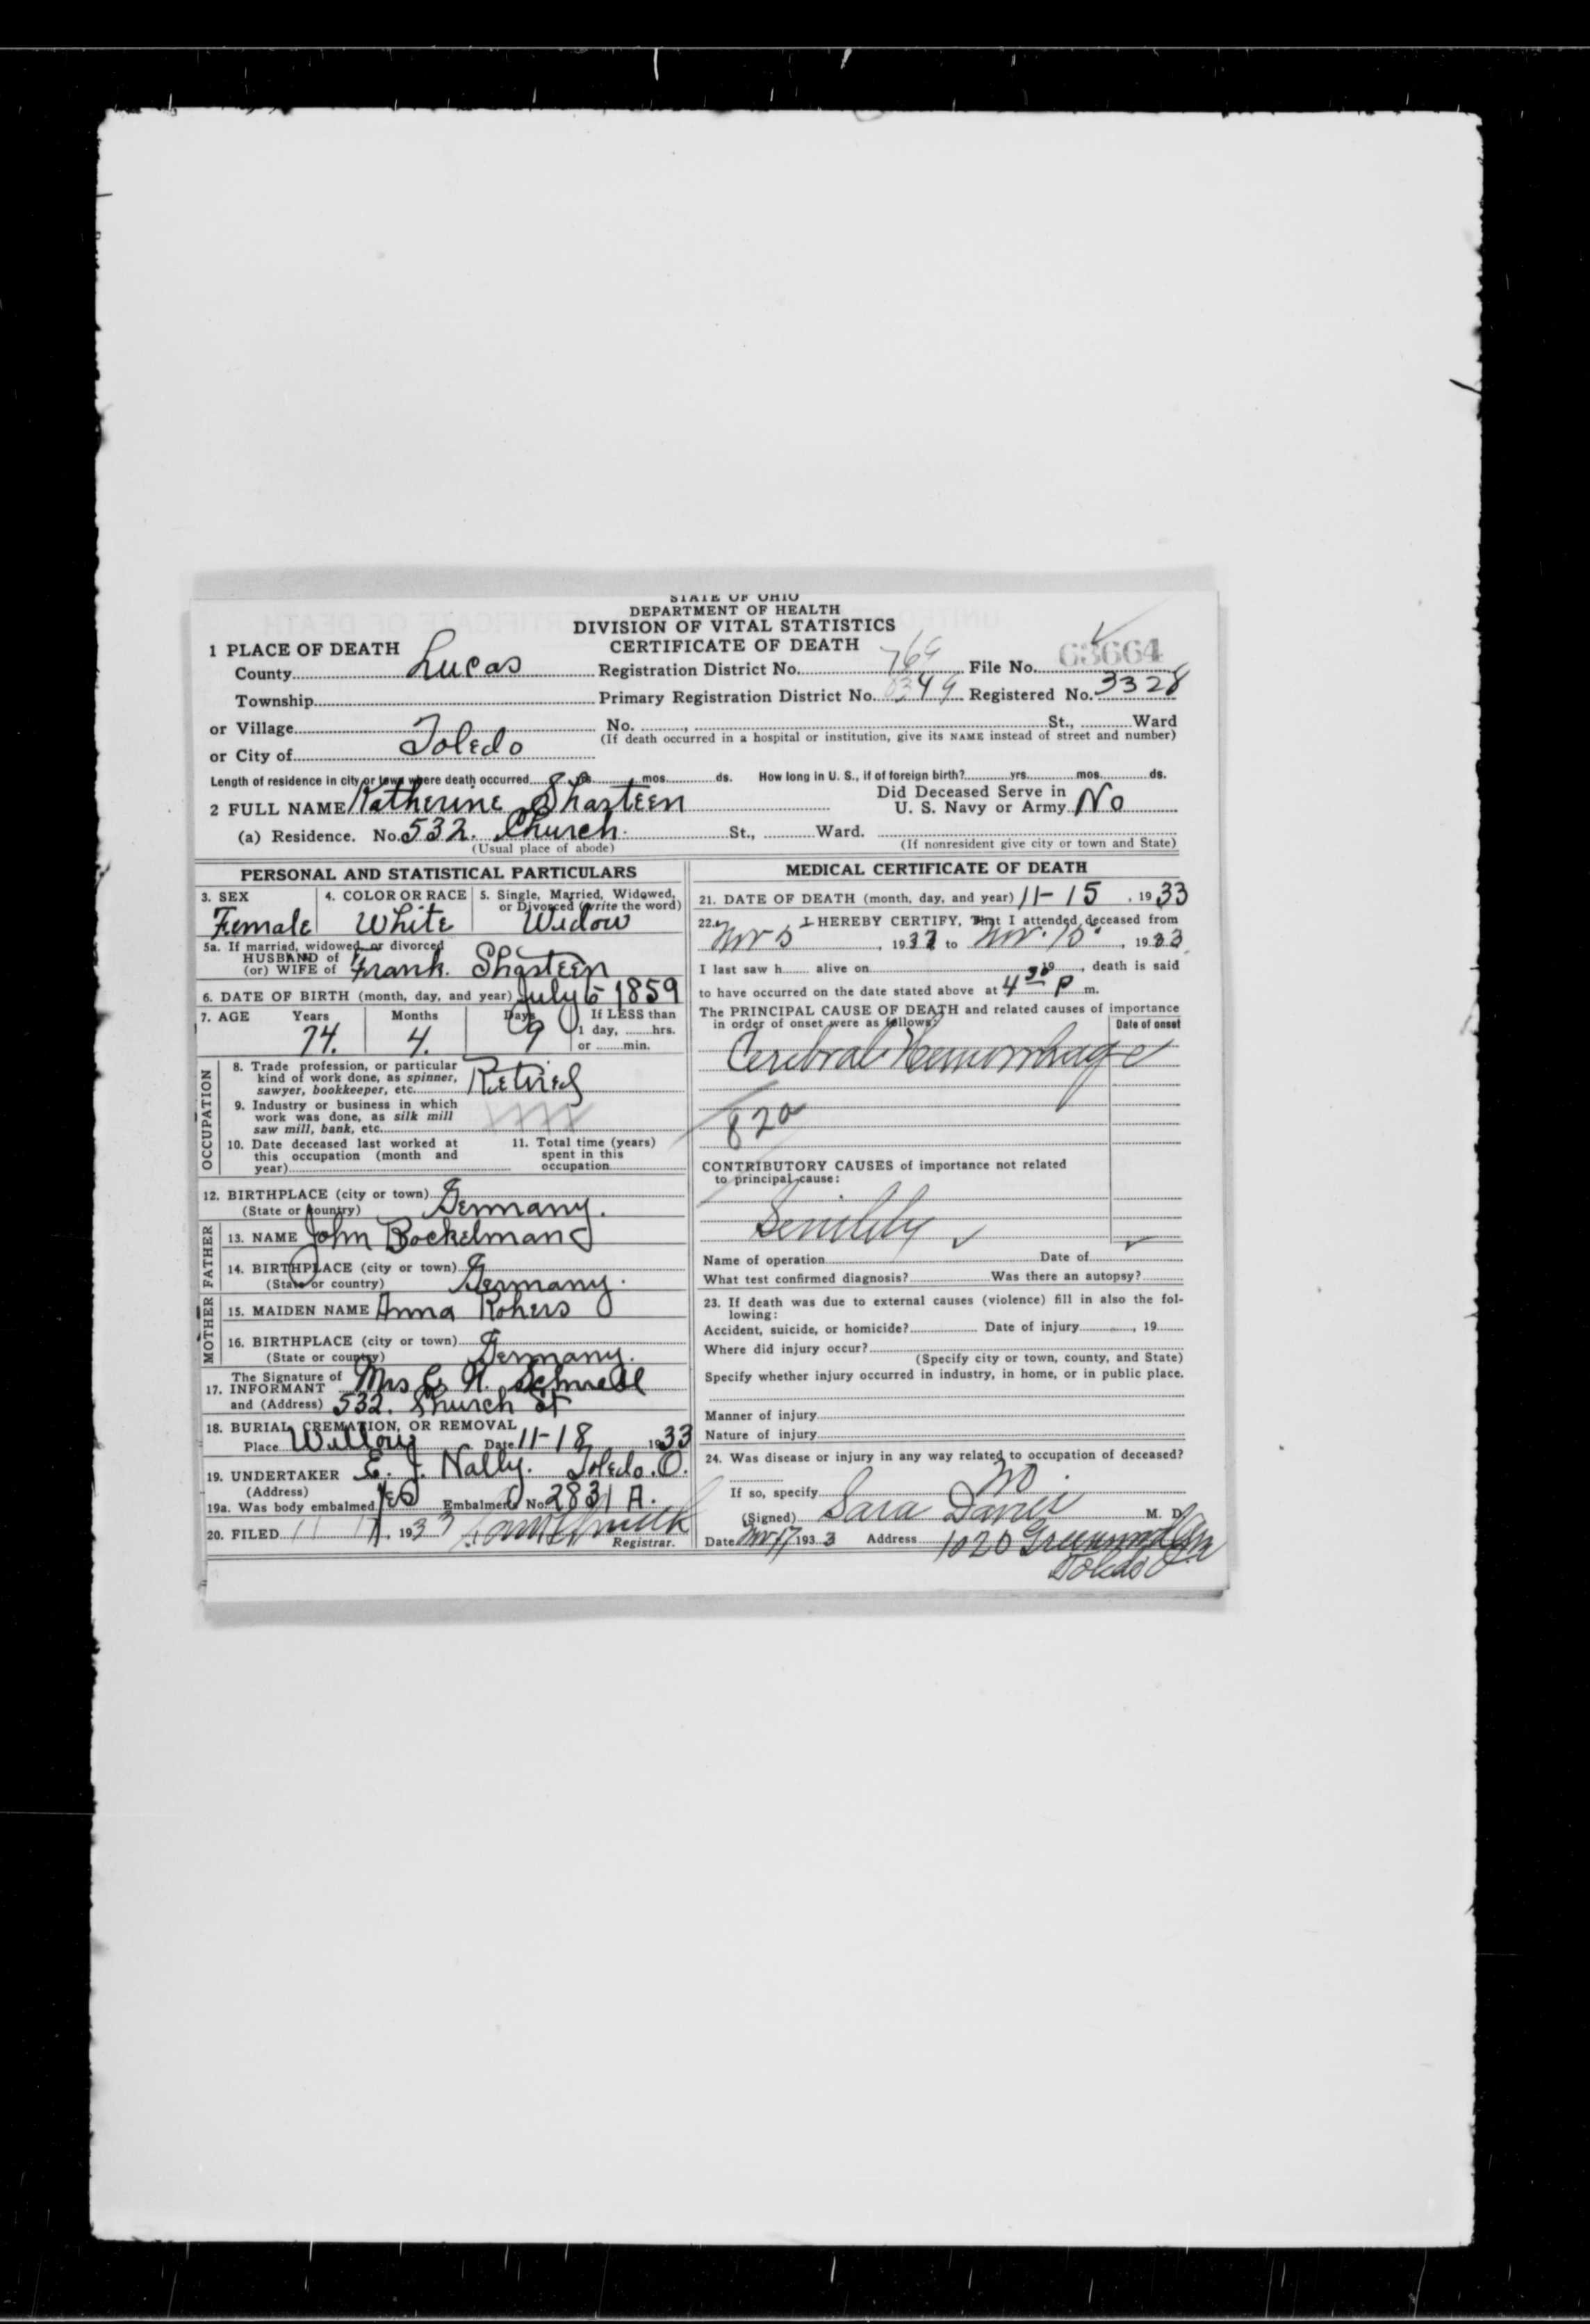 STATE OF OHIO
DEPARTMENT OF HEALTH
DIVISION OF VITAL STATISTICS
CERTIFICATE OF DEATH
1 PLACE OF DEATH
County Lucas Registration District No. 769 File No. 63664
Township Primary Registration District No. 8349 Registered No. 3328
or Village No. , St., Ward
or City of Toledo (If death occurred in a hospital or institution, give its NAME instead of street and number)
Length of residence in city or town where death occurred yrs. mos. ds. How long in U. S., if of foreign birth? yrs. mos. ds.
2 FULL NAME Katherine Shasteen Did Deceased Serve in U. S. Navy or Army No
(a) Residence. No. 532. Church. St., Ward.
(Usual place of abode) (If nonresident give city or town and State)
PERSONAL AND STATISTICAL PARTICULARS
3. SEX Female
4. COLOR OR RACE White
5. Single, Married, Widowed, or Divorced (write the word) Widow
5a. If married, widowed, or divorced
HUSBAND of
(or) WIFE of Frank. Shasteen
6. DATE OF BIRTH (month, day, and year) July 6 1859
7. AGE Years 74. Months 4. Days 9 If LESS than
1 day, hrs.
or min.
OCCUPATION
8. Trade profession, or particular
kind of work done, as spinner,
sawyer, bookkeeper, etc. Retired
9. Industry or business in which
work was done, as silk mill
saw mill, bank, etc.
10. Date deceased last worked at
this occupation (month and
year)
11. Total time (years)
spent in this
occupation
12. BIRTHPLACE (city or town)
(State or country) Germany.
FATHER
13. NAME John Bockelman
14. BIRTHPLACE (city or town)
(State or country) Germany.
MOTHER
15. MAIDEN NAME Anna Rohers
16. BIRTHPLACE (city or town)
(State or country) Germany.
17. The Signature of
INFORMANT Mrs E. H. Schnell
and (Address) 532. Church St
18. BURIAL, CREMATION, OR REMOVAL
Place Willow Date 11-18 1933
19. UNDERTAKER E. J. Nally. Toledo. O.
(Address)
19a. Was body embalmed yes Embalmers No. 2831 A.
20. FILED 11 17, 1933
Registrar.
MEDICAL CERTIFICATE OF DEATH
21. DATE OF DEATH (month, day, and year) 11-15, 1933
22. I HEREBY CERTIFY, That I attended deceased from
Nov 5, 1933 to Nov. 15, 1933
I last saw h alive on 19 , death is said
to have occurred on the date stated above at 4 30 P m.
The PRINCIPAL CAUSE OF DEATH and related causes of importance
in order of onset were as follows:
Date of onset
Cerebral Hemorrhage
82a
CONTRIBUTORY CAUSES of importance not related
to principal cause:
Senility
Name of operation Date of
What test confirmed diagnosis? Was there an autopsy?
23. If death was due to external causes (violence) fill in also the fol-
lowing:
Accident, suicide, or homicide? Date of injury , 19
Where did injury occur?
(Specify city or town, county, and State)
Specify whether injury occurred in industry, in home, or in public place.
Manner of injury
Nature of injury
24. Was disease or injury in any way related to occupation of deceased?
No.
If so, specify
(Signed) Sara Davies M. D.
Date Nov 17 1933 Address 1020 Greenwood Ave
Toledo O